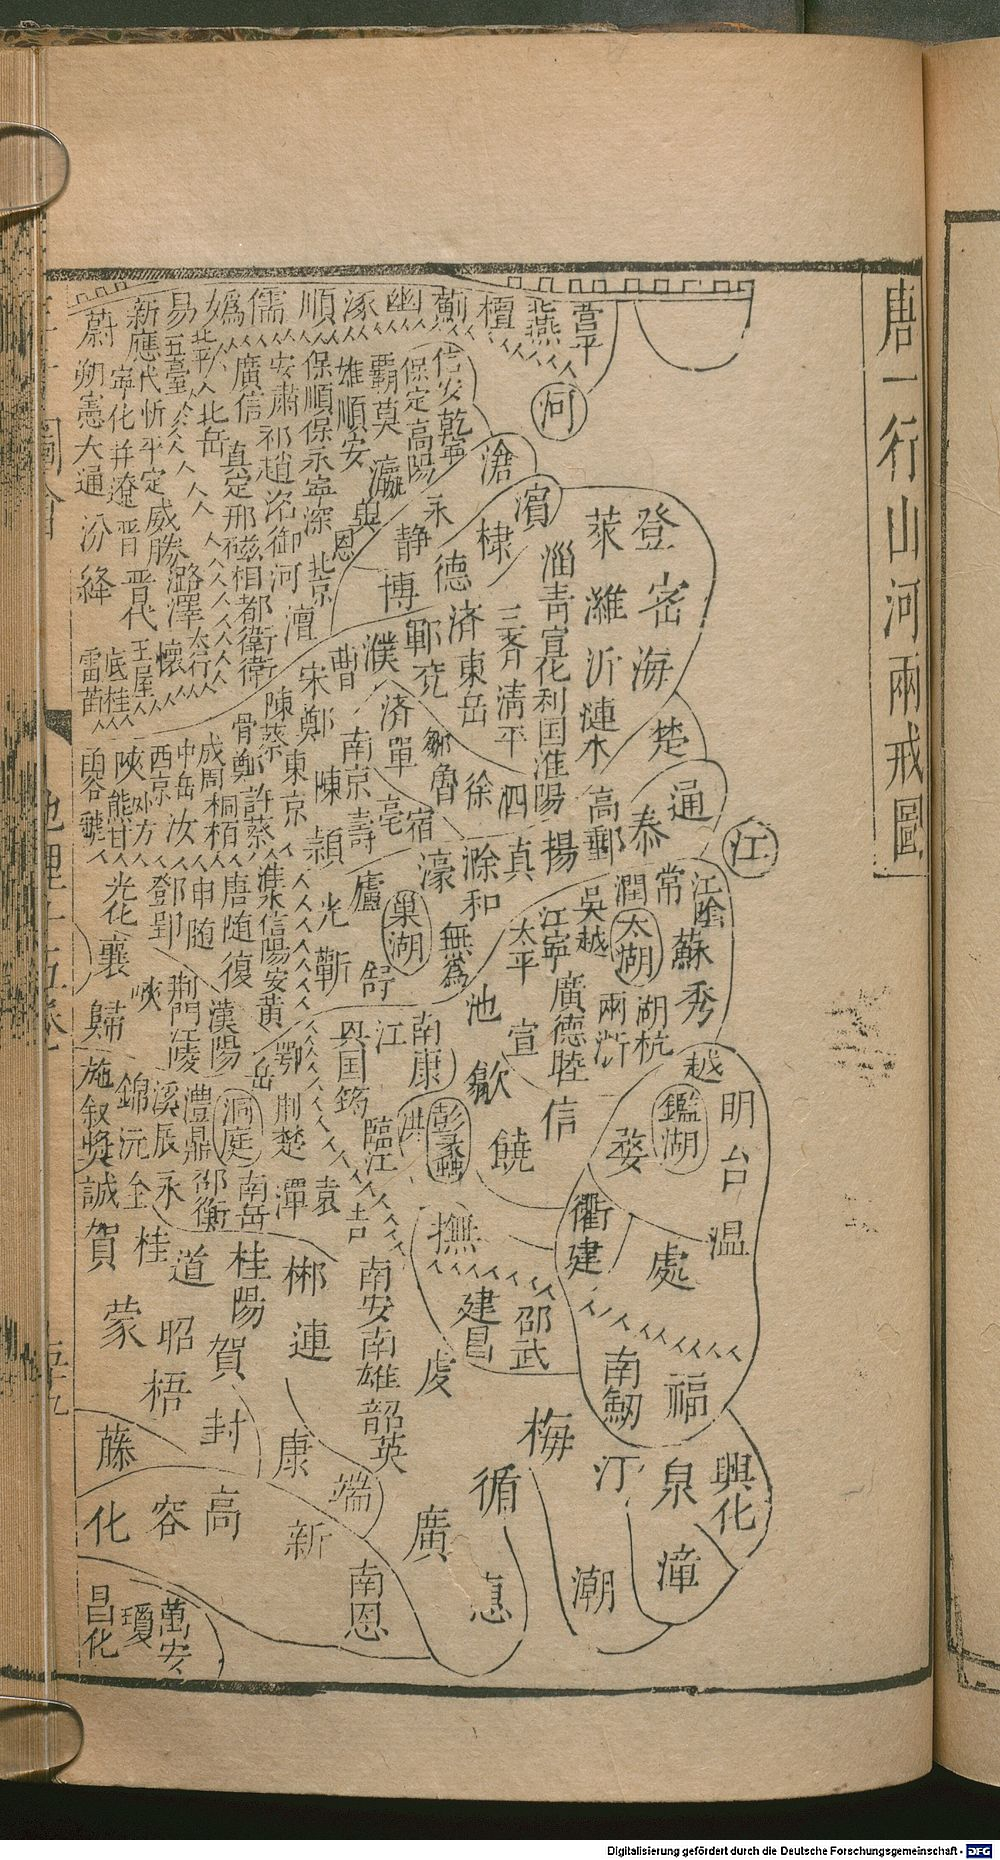 唐一行山河兩戒圖
營平
燕
檀
薊
幽
涿
順
儒
媯
易
新
蔚
河
信安
乾寧
保定
高陽
霸
莫
雄
順安
瀛
保順
保
永寧
深
安肅
祁
趙
洺
御
河
廣信
真定
邢
磁
相
都
衛
北平
北岳
五臺
應
代
忻
平定
威勝
潞
澤
太行
懷
寧化
并
遼
晉
晉
代
王屋
底柱
朔
憲
大通
汾
絳
雷首
滄
濱
棣
永
靜
德
博
恩
北京
澶
登
萊
密
濰
淄
青
宣化
利国
淮陽
三齊
清平
海
沂
漣水
楚
済
東岳
鄆
兖
濮
曹
宋
鄭
済
單
鄒
魯
徐
泗
南京
壽
亳
宿
陳
東京
陳
蔡
穎
許
蔡
成周
桐柏
中岳
汝
西京
外方
陝
熊耳
虢
通
泰
高郵
揚
真
滁
和
濠
江
江陰
常
潤
太湖
蘇
秀
吳越
江寧
太平
廣德
睦
兩浙
湖
杭
無為
巢湖
廬
舒
光
蘄
淮
信陽
安
黃
唐
随
復
申
随
鄧
郢
光化
襄
峽
歸
荆門
江陵
漢陽
鄂
岳
池
宣
歙
南康
江
興国
筠
臨江
洪
彭蠡
饒
信
越
鑑湖
明
台
婺
温
衢
建
處
施
叙
獎
誠
錦
沅
全
溪
辰
永
澧
鼎
邵
衡
洞庭
南岳
荆
楚
潭
袁
吉
撫
建昌
邵武
南劒
福
賀
桂
道
桂陽
郴
南安
南雄
韶
英
虔
蒙
昭
賀
連
梧
封
康
端
梅
汀
泉
興化
漳
潮
循
廣
惠
藤
化
容
高
新
南恩
昌化
瓊
萬安
地理十五卷
Digitalisierung gefördert durch die Deutsche Forschungsgemeinschaft - DFG